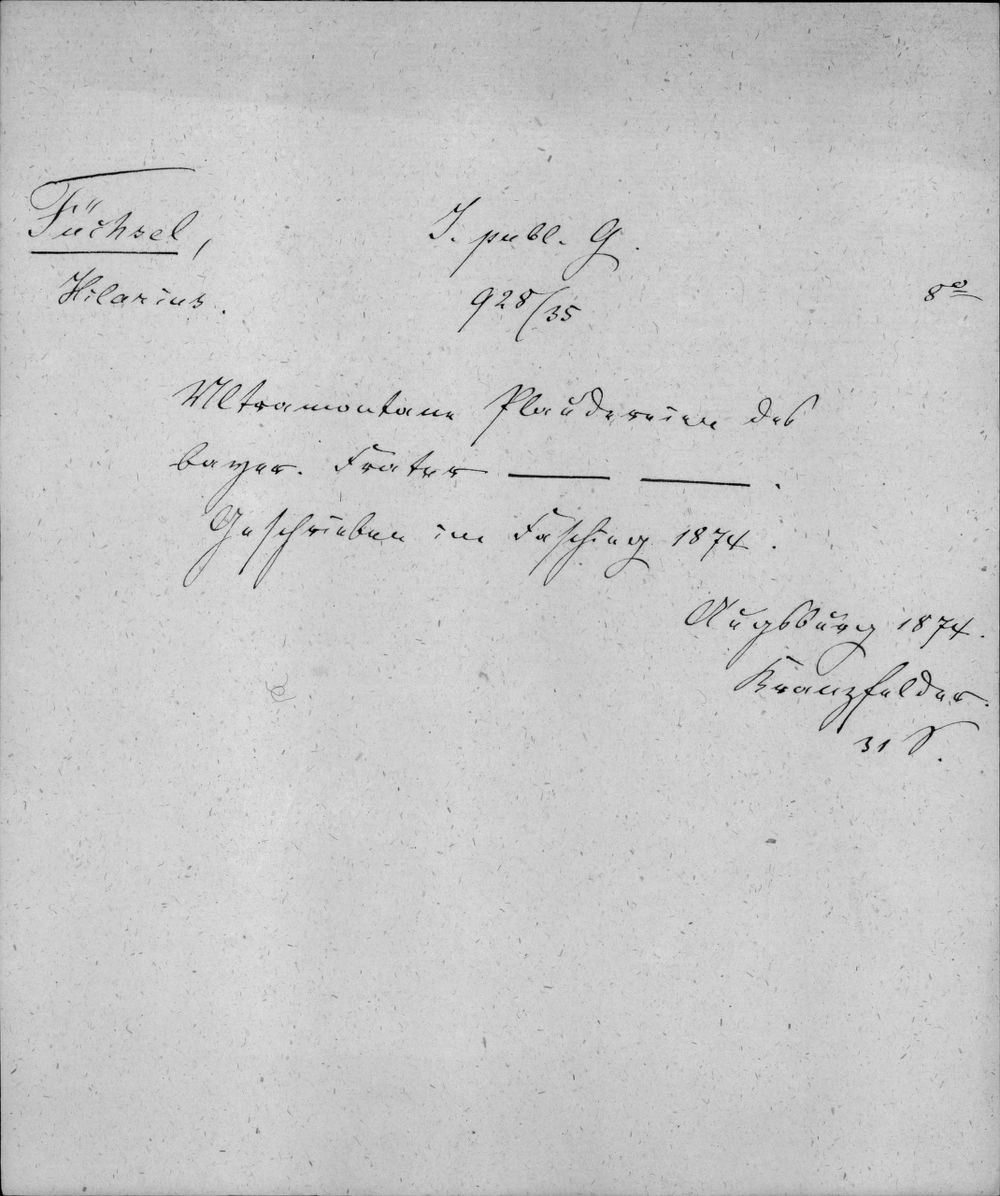 Füchsel,
J. publ. G.
Hilarius.
928/35
8º
Ultramontane Plaudereien des
bayer. Frater — — .
Geschrieben im Fasching 1874.
Augsburg 1874.
Kranzfelder.
31 S.